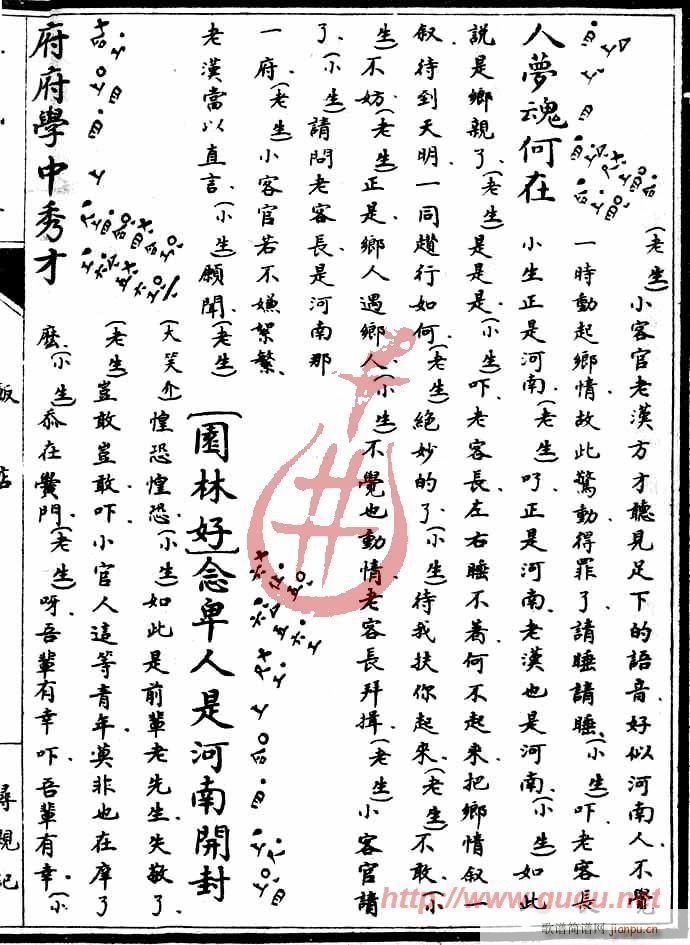 人夢魂何在
(老生)小客官老漢方才聽見足下的語音好似河南人、不覺
一時動起鄉情故此驚動得罪了請睡請睡、(小生)吓、老客長
小生正是河南、(老生)吖、正是河南、老漢也是河南、(小生)如此
說是鄉親了、(老生)是是是、(小生)吓、老客長左右睡不着何不起來把鄉情叙一
叙、待到天明、一同趲行如何、(老生)絕妙的了、(小生)待我扶你起來、(老生)不敢、(小
生)不妨、(老生)正是、鄉人遇鄉人、(小生)不覺也動情、老客長拜揖、(老生)小客官請
了、(小生)請問老客長是河南那
一府、(老生)小客官若不嫌絮繁、
老漢當以直言、(小生)願聞、(老生)
[園林好]念卑人是河南開封
(大笑介)惶恐惶恐、(小生)如此是前輩老先生、失敬了、
(老生)豈敢豈敢吓、小官人這等青年、莫非也在庠了
府府學中秀才
麼、(小生)忝在黌門、(老生)呀、吾輩有幸吓、吾輩有幸、(小
飯店
尋親記
http://www.gudu.net
歌谱简谱网
jianpu.cn